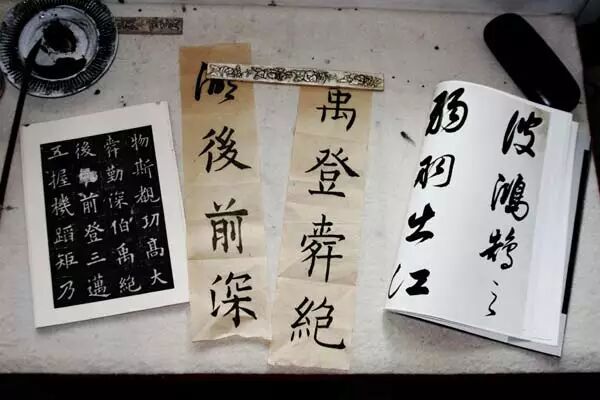 物斯覩功高大
舜勤深伯禹絕
後前登三邁
五握機蹈矩乃
禹登舜絕
後前深
波鴻鵠之
出江